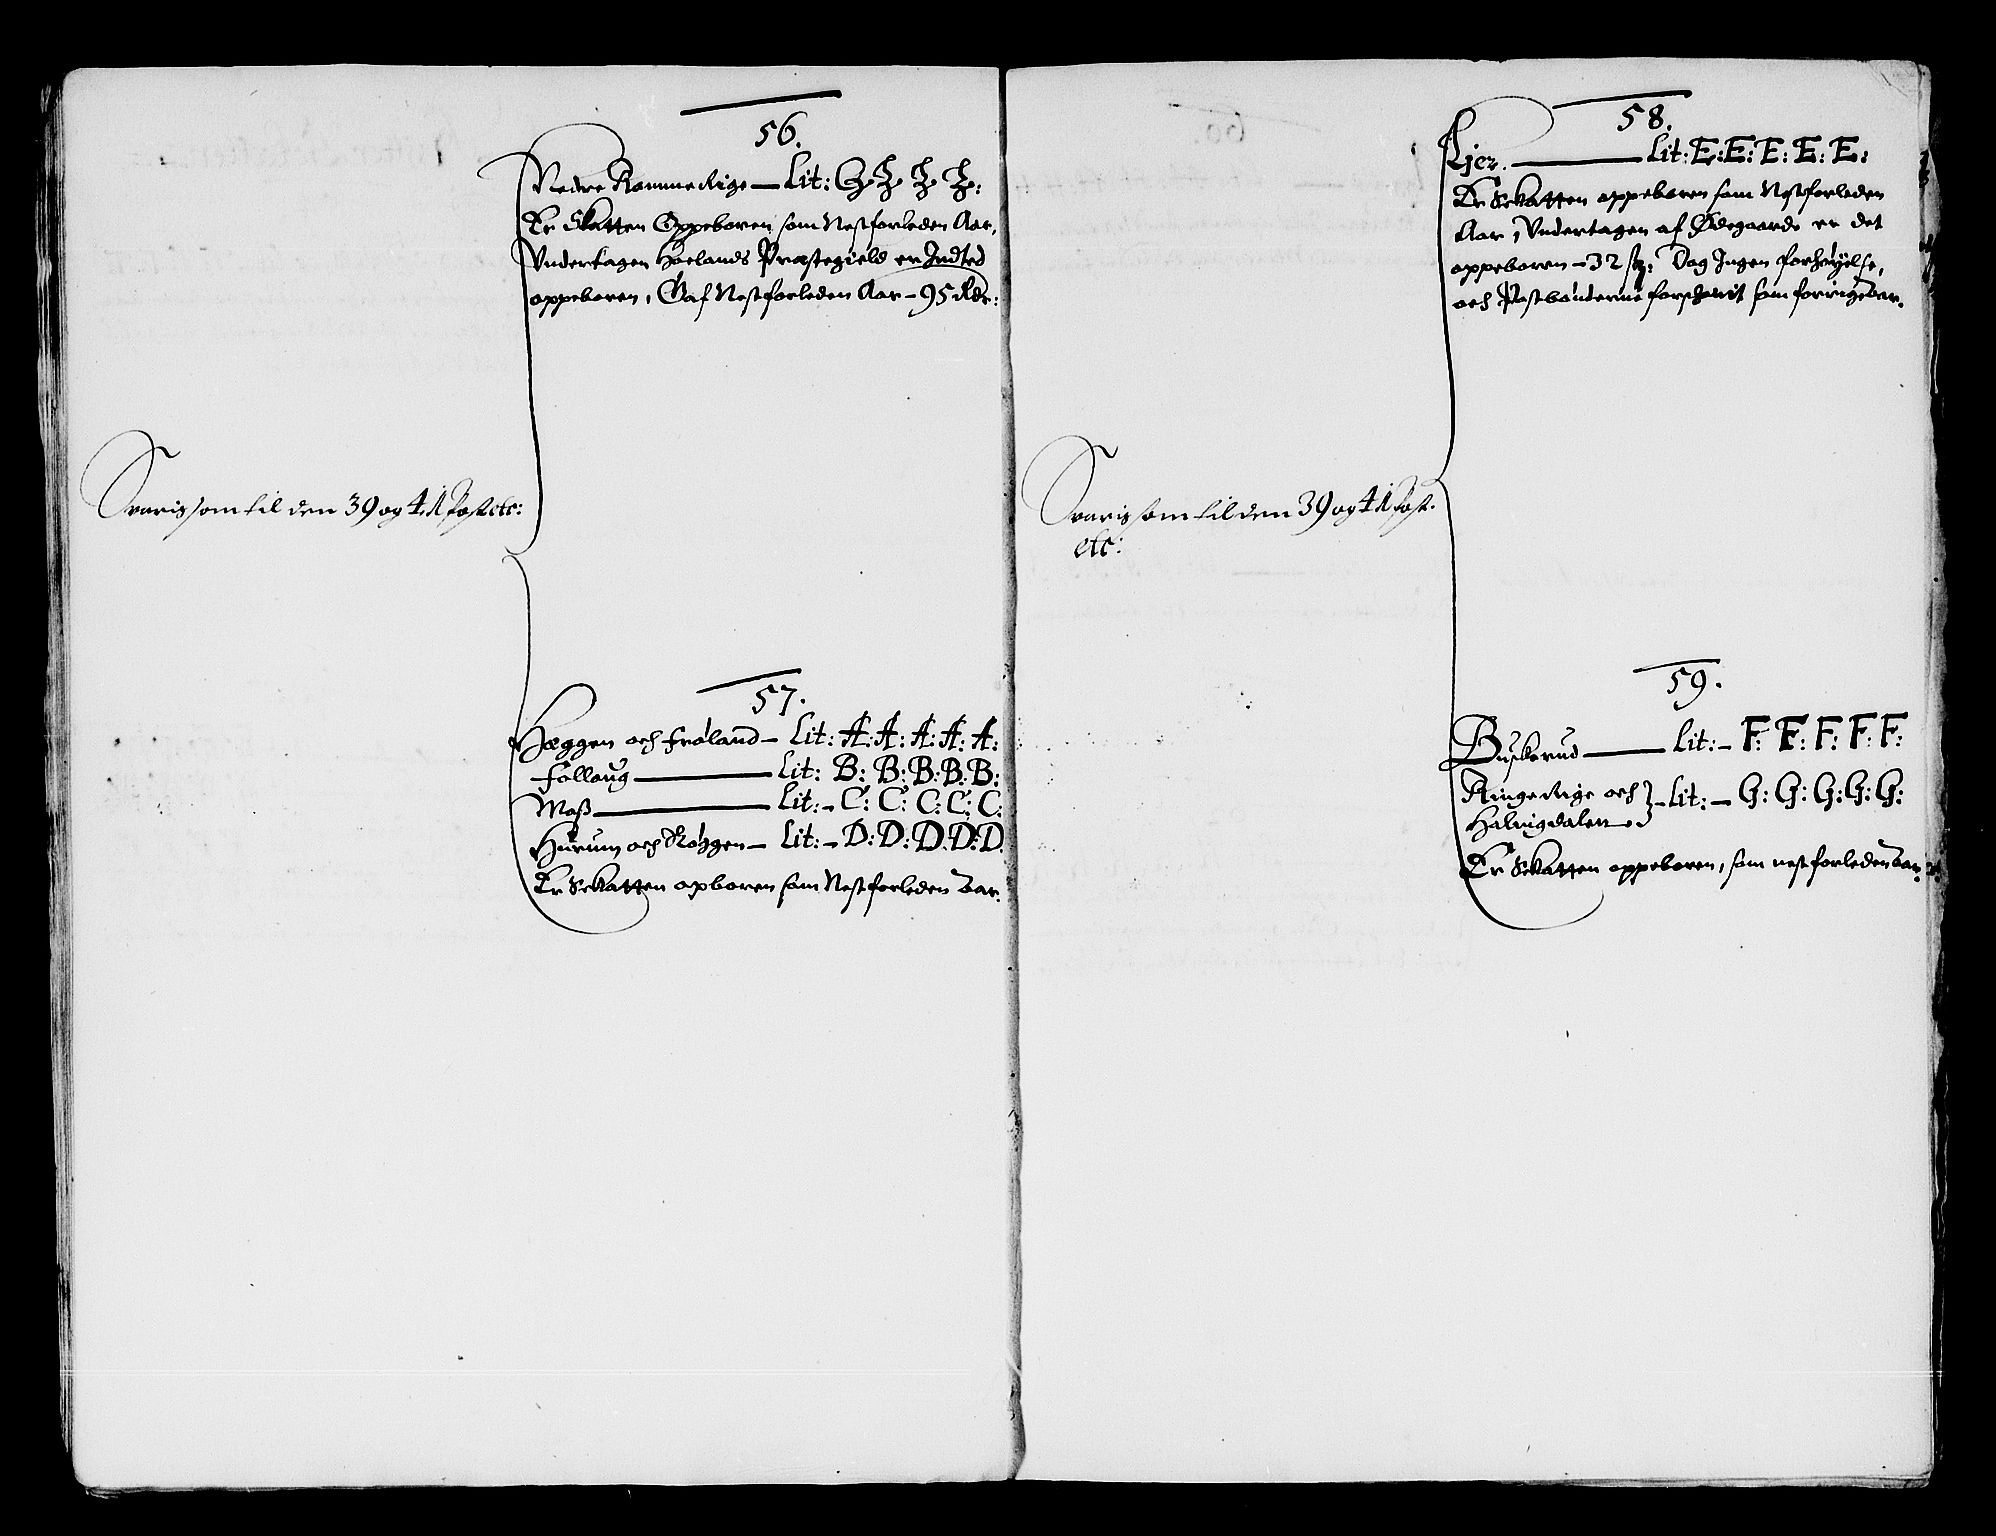 56.
Nedre Rommerige — Lit: Z. Z. Z. Z:
Er Skatten Oppeboren som Nestforleden Aar,
Undertagen Hoelands Præstegield er Indted
oppeboren, Gaf Nestforleden Aar – 95 Rdr:
Svaris som til den 39 og 41 Post etc:
57.
Hæggen och frøland – Lit: A: A: A: A: A:
follaug — Lit: B: B: B: B: B:
Moß — Lit: – C: C: C: C: C:
Hurum och Røggen – Lit: – D: D: D: D: D.
Er Sckatten opboren som Nestforleden Aar.
58.
Lier. — Lit: E: E: E: E: E:
Er Sckatten oppeboren som Nestforleden
Aar, Undertagen af Ødegaarde er det
oppeboren – 32 Dog Ingen forhøyelse,
och Postbønderne forschonit som forrige Aar.
Svaris som til den 39 og 41 Post.
etc:
59.
Buskerud — Lit: – F: F: F: F: F:
Ringerige och } – Lit: – G: G: G: G: G:
Halingdalen
Er Sckatten oppeboren, som nestforleden Aar.